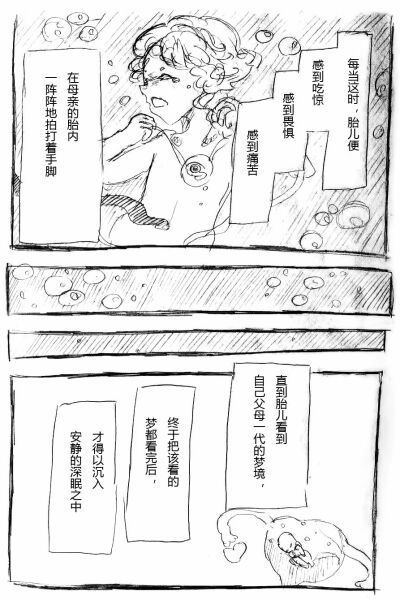 每当这时，胎儿便
感到吃惊
感到畏惧
感到痛苦
在母亲的胎内
一阵阵地拍打着手脚
直到胎儿看到
自己父母一代的梦境，
终于把该看的
梦都看完后，
才得以沉入
安静的深眠之中